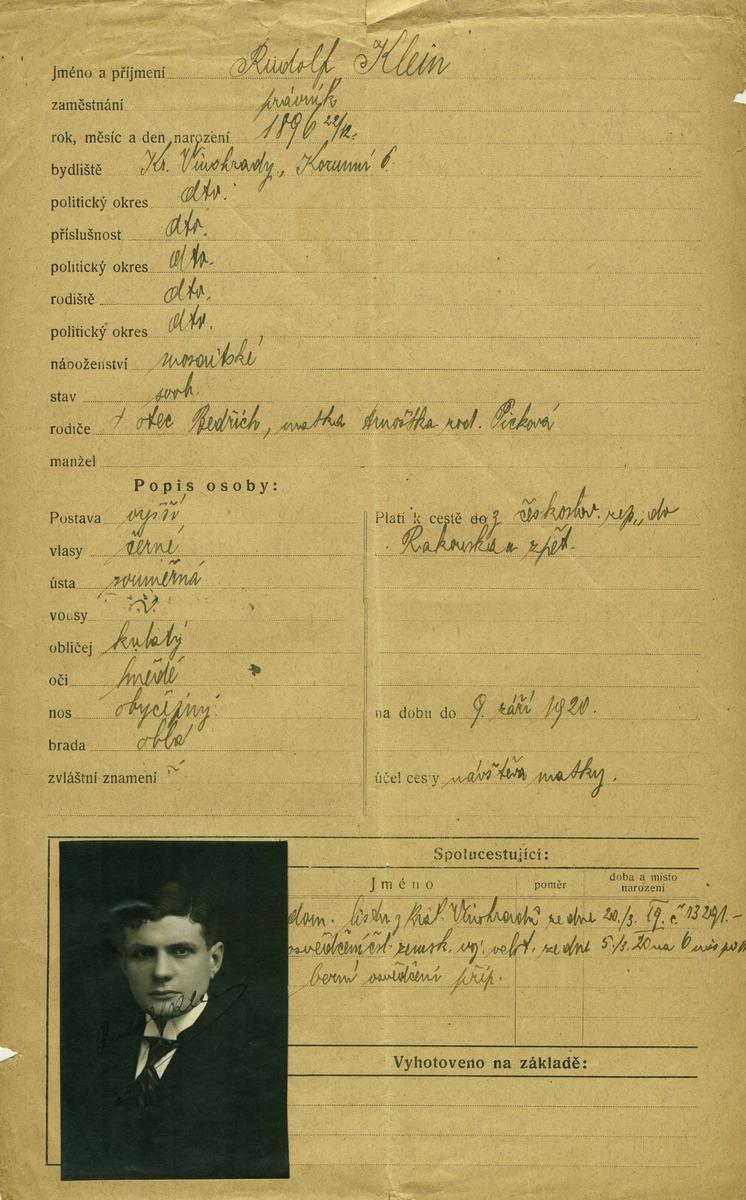 Jméno a příjmení Rudolf Klein
zaměstnání právník
rok, měsíc a den narození 1896 22/12.
bydliště Kr. Vinohrady, Korunní 6.
politický okres dto.
příslušnost dto.
politický okres dto.
rodiště dto.
politický okres dto.
náboženství mosaitské
stav svob.
rodiče † otec Bedřich, matka Arnoštka rod. Picková
manžel
Popis osoby:
Postava vyšší
vlasy černé
ústa souměrná
vousy
obličej kulatý
oči hnědé
nos obyčejný
brada oblá
zvláštní znamení
Platí k cestě do z českoslov. rep., do
Rakouska a zpět.
na dobu do 9. září 1920.
účel cesty návštěva matky.
Spolucestující:
Jméno poměr doba a místo narození
dom. listu z Král. Vinohradů ze dne 20./3. 19. č 13291.-
osvědčení čsl. zemsk. voj. velit. ze dne 5./3. 20 na 6
berní osvědčení příp.
Vyhotoveno na základě:
Rudolf Klein